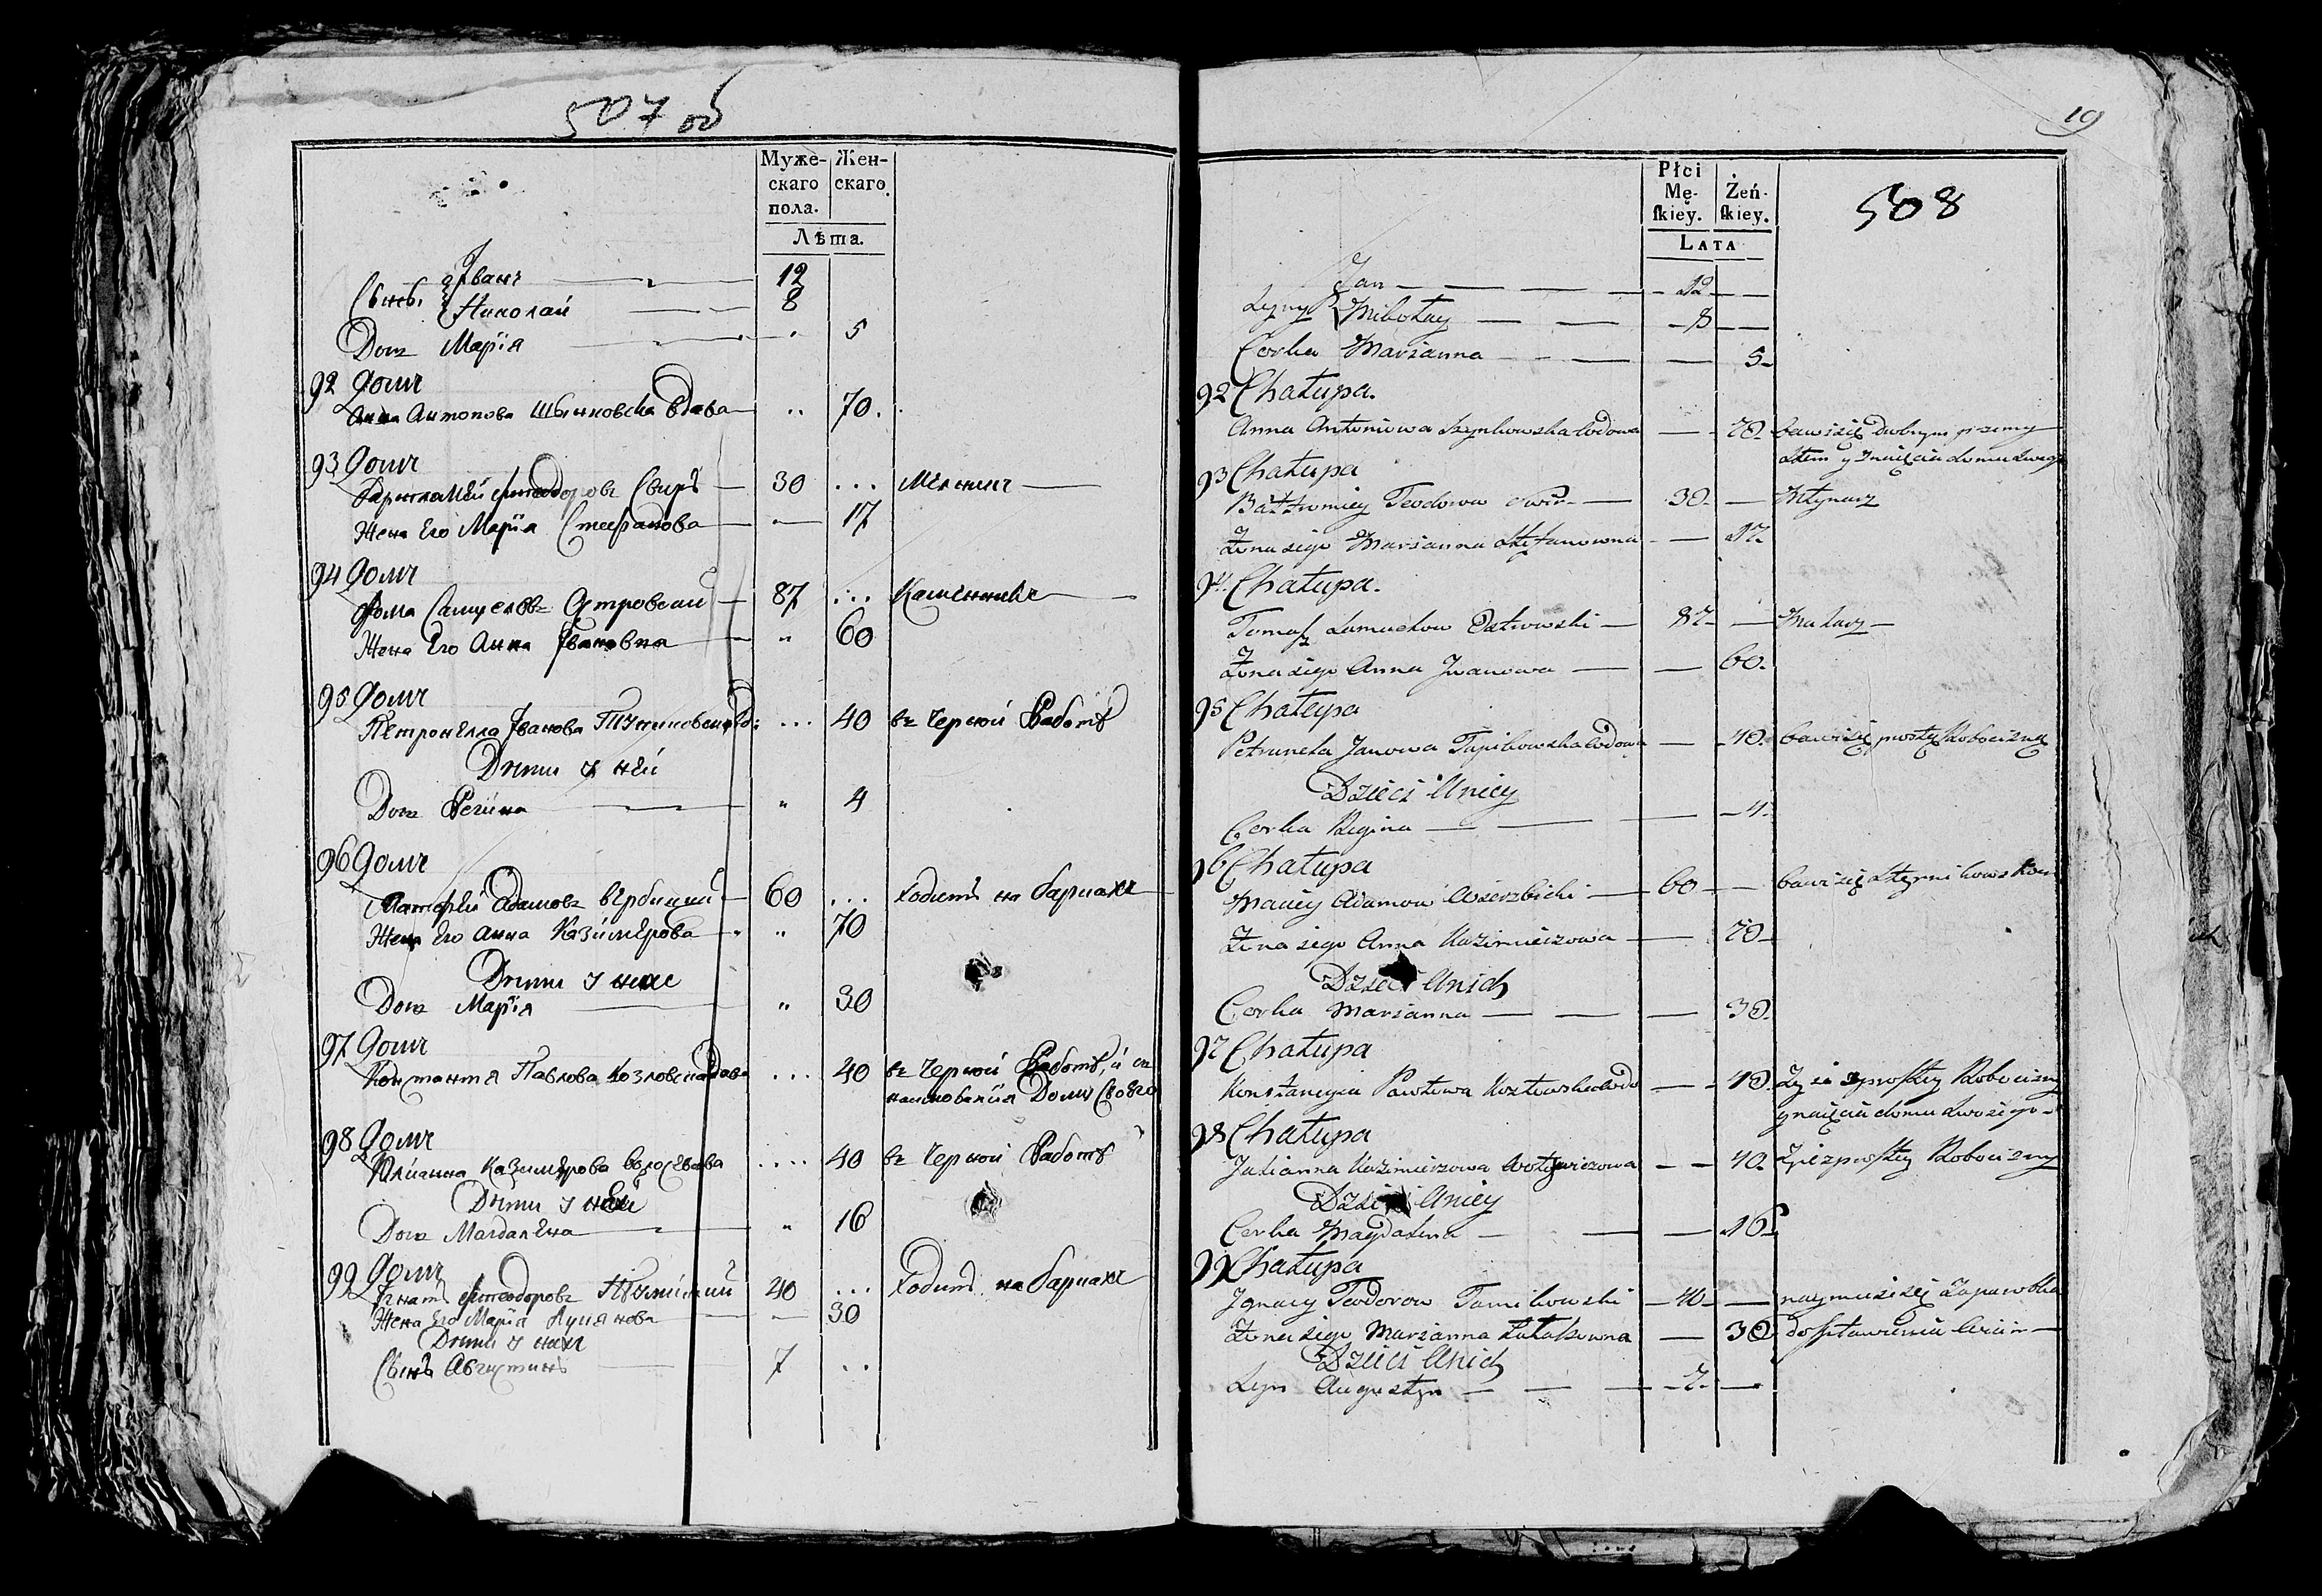 507 об
Муже-
скаго
пола.
Жен-
скаго.
Лѣта.
Сыны Иванъ 12
Николай 8
Дочь Марія 5
92 Домъ
Анна Антонова вдова 70.
93 Домъ
Свиръ 30 Мельникъ
Жена Его Марія Стефанова 17
94 Домъ
Фома Самуеловъ Островскій 87 Каменникъ
Жена Его Анна Ивановна 60
95 Домъ
Петронелла Иванова 40 въ Черной Работѣ
Дѣти у ней
Дочь Регина 4
96 Домъ
Матфей Адамовъ Вѣрбицкій 60 ходитъ на баркахъ
Жена Его Анна Казимѣрова 70
Дѣти у нихъ
Дочь Марія 30
97 Домъ
Константія Павлова Козловска вдова 40 въ Черной Работѣ, и съ
наимованія Дому Своего
98 Домъ
Юліанна Казимѣрова 40 въ Черной Работѣ
Дѣти у ней
Дочь Магдалена 16
99 Домъ
Игнатъ 40 ходитъ на баркахъ
Жена Его Марія 30
Дѣти у нихъ
Сынъ Августинъ 7
19
Płci
Mę-
ſkiey.
Żeń-
ſkiey.
LATA
508
Jan 12
Syny Mikołay 8
Corka Marianna 5
92 Chałupa.
Anna Antoniowa Szynkowska wdowa 70 bawi się
y domu swego
93 Chałupa
Bartłomiey Teodorow Swir 30 Młynarz
Żona jego Marianna Stefanowna 17
94 Chałupa.
Tomaſz Samuelow Ostrowski 87 Mularz
Żona jego Anna Iwanowa 60
95 Chałupa
Petrunela Janowa wdowa 40 bawi się prostą Robocizną
Dzieci Uniey
Corka Regina 4
96 Chałupa
Maciey Adamow Wierzbicki 60 bawi się
Żona jego Anna Kazimierzowa 70
Dzieci Unich
Corka Marianna 30
97 Chałupa
Konstancyia Pawłowa Kozłowska wdo 40 Żyie z proſtey Robocizny
y naięcia domu swoiego
98 Chałupa
Julianna Kazimierzowa 40 Żyie z proſtey Robocizny
Dzieci Uniey
Corka Magdalena 16
99 Chałupa
Ignacy Teodorow 40 naymuie się
Żona jego Marianna 30 do ſtawienia
Dzieci Unich
Syn Augustyn 7